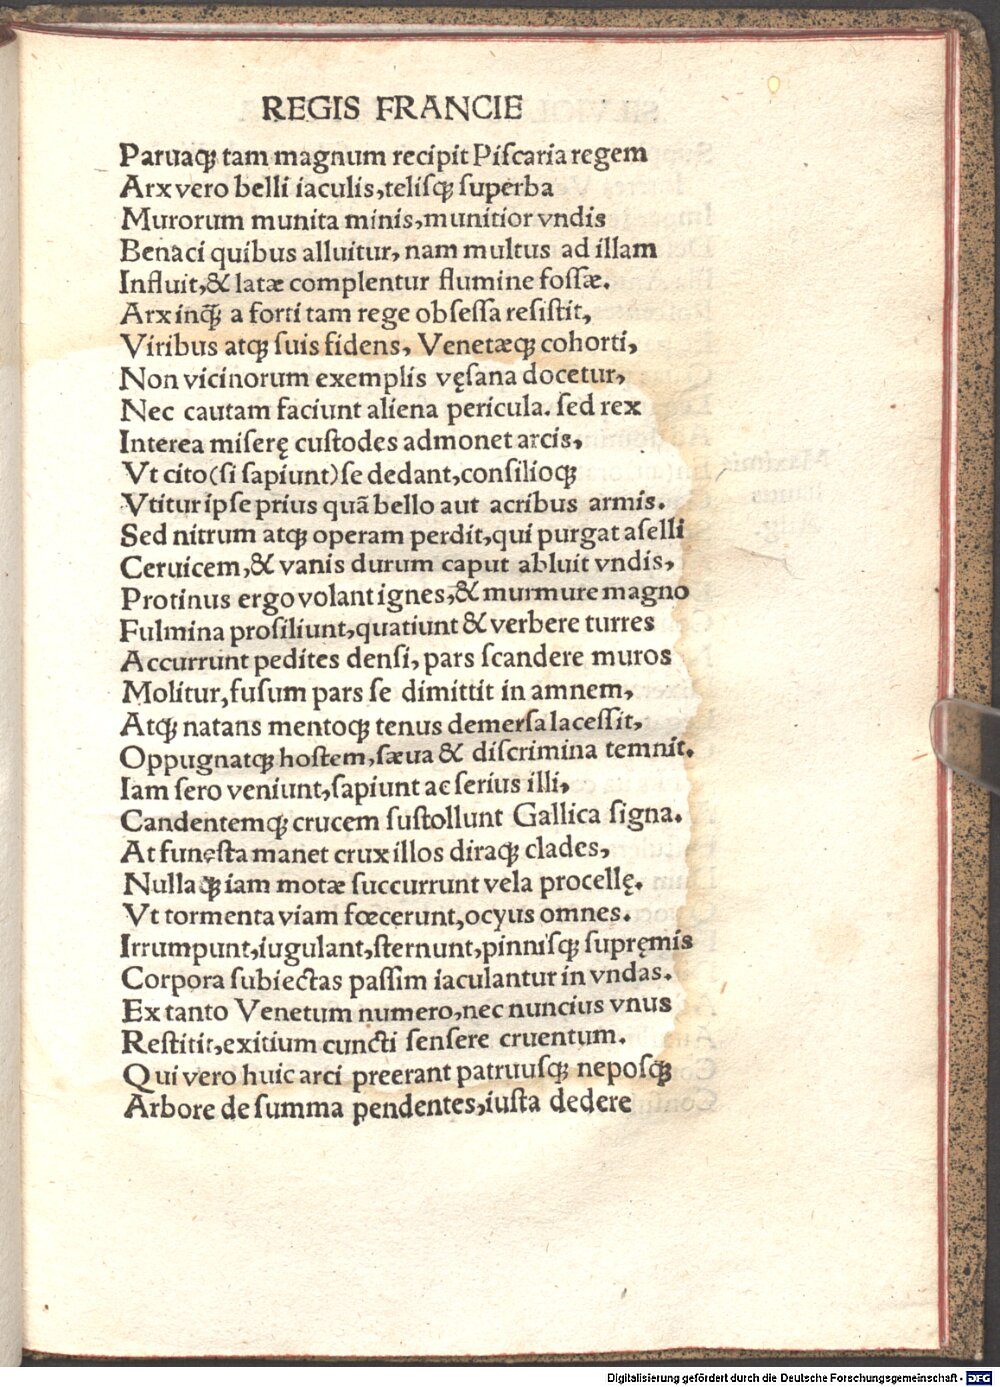 REGIS FRANCIE
Paruaqꝫ tam magnum recipit Piſcaria regem
Arx vero belli iaculis,teliſqꝫ ſuperba
Murorum munita minis,munitior vndis
Benaci quibus alluitur, nam multus ad illam
Influit,& latæ complentur flumine foſſæ.
Arx inqꝫ̃ a forti tam rege obſeſſa reſiſtit,
Viribus atqꝫ ſuis fidens, Venetæqꝫ cohorti,
Non vicinorum exemplis vęſana docetur,
Nec cautam faciunt aliena pericula. ſed rex
Interea miſerę cuſtodes admonet arcis,
Vt cito(ſi ſapiunt)ſe dedant,conſilioqꝫ
Vtitur ipſe prius quã bello aut acribus armis.
Sed nitrum atqꝫ operam perdit,qui purgat aſelli
Ceruicem,& vanis durum caput abluit vndis,
Protinus ergo volant ignes,& murmure magno
Fulmina proſiliunt,quatiunt & verbere turres
Accurrunt pedites denſi, pars ſcandere muros
Molitur,fuſum pars ſe dimittit in amnem,
Atqꝫ natans mentoqꝫ tenus demerſa laceſſit,
Oppugnatqꝫ hoſtem,ſæua & diſcrimina temnit.
Iam ſero veniunt,ſapiunt ac ſerius illi,
Candentemqꝫ crucem ſuſtollunt Gallica ſigna.
At funęſta manet crux illos diraqꝫ clades,
Nullaqꝫ iam motæ ſuccurrunt vela procellę.
Vt tormenta viam fœcerunt,ocyus omnes.
Irrumpunt,iugulant,ſternunt,pinniſqꝫ ſupręmis
Corpora ſubiectas paſſim iaculantur in vndas.
Ex tanto Venetum numero,nec nuncius vnus
Reſtitit,exitium cuncti ſenſere cruentum.
Qui vero huic arci preerant patruuſqꝫ nepoſqꝫ
Arbore de ſumma pendentes,iuſta dedere
Digitalisierung gefördert durch die Deutsche Forschungsgemeinschaft - DFG